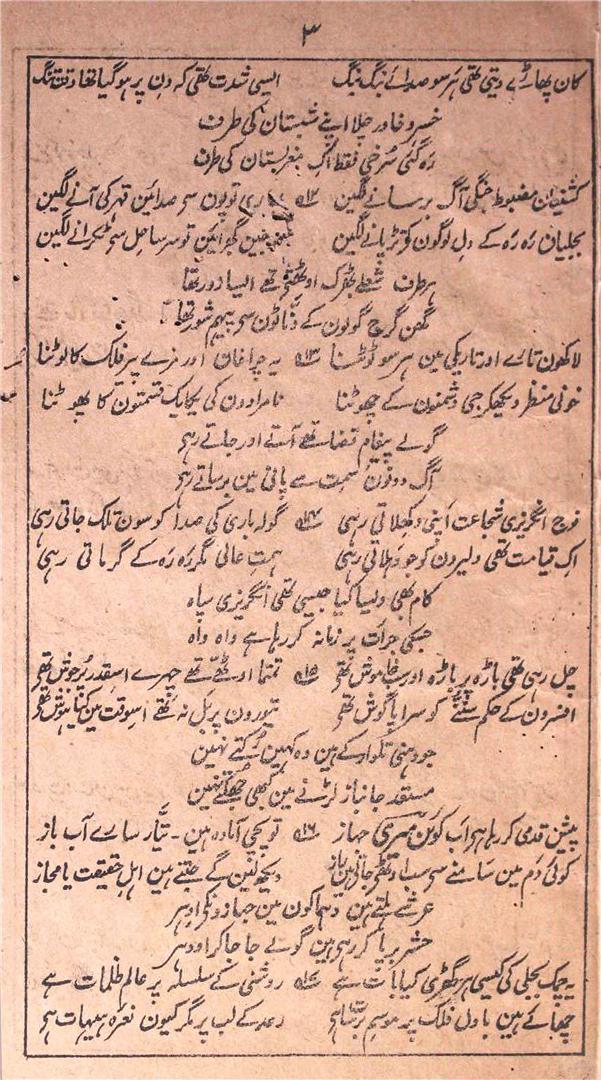 ۳
کان پھاڑے دیتی تھی ہر سو صدائے بنگ بنگ ایسی شدت تھی کہ دن پر ہو گیا تھا وقت تنگ
خسرو خاور چلا اپنے شبستان کی طرف
رہ گئی سرخی فقط اک مغربستان کی طرف
کشتیان مضبوط جنگی آگ برسانے لگین ۱۲ توپون سی صدائین قہر کی آنے لگین
بجلیان رہ رہ کے دل لوگون کو تڑپانے لگین گھبرائین تو سر ساحل سی ٹکرانے لگین
ہر طرف شعلے بھڑک اوٹھتے تھے ایسا زور تھا
گھن گرج گولون کے دناٹون سی پیہم شور تھا
لاکھون تارے اور تاریکی مین ہر سو ٹوٹنا ۱۳ یہ چراغان اور مزے پیر فلک کا لوٹنا
خونی منظر دیکھکر جی دشمنون کے چھوٹنا نامرادون کی یکایک قسمتون کا پھوٹنا
گولے پیغام قضا تھے آتے اور جاتے رہی
آگ دونون سمت سے پانی مین برساتے رہی
فوج انگریزی شجاعت اپنی دکھلاتی رہی ۱۴ گولہ باری کی صدا کوسون تلک جاتی رہی
اک قیامت تھی دلیرون کو جو دہلاتی رہی ہمت عالی مگر رہ رہ کے گرماتی رہی
کام بھی ویسا کیا جیسی تھی انگریزی سپاہ
جسکی جرات پر زمانہ کر رہا ہے واہ واہ
چل رہی تھی باڑہ پر باڑہ اور سب خاموش تھی ۱۵ تمتما اوٹھے تھے چہرے اسقدر پرجوش تھی
افسرون کے حکم سننے کو سراپا گوش تھی تیورون پر بل نہ تھے اسوقت مین
جو دھنی تلوار کے ہین وہ کہین رکتے نہین
مستعد جانباز لڑنے مین کبھی جھکتے نہین
پیش قدمی کر رہا ہی اب کوئن میری جہاز ۱۶ توپچی آمادہ ہین۔ تیار سارے آب باز
کوئی دم مین سامنے سی سب اوٹھی جاتی ہین راز دیکھ لین گے جتنے ہین اہل حقیقت یا مجاز
عرشے ہلتے ہین دھماکون مین جہازونکی اودہر
حشر برپا کر رہی ہین گولے جا جا کر اودہر
یہ چمک بجلی کی کیسی ہر گھڑی کیا بات ہے ۱۷ روشنی کے سلسلہ پر عالم ظلمات ہے
چھائے ہین بادل فلک پر موسم برسات ہی رعد کے لب پر مگر کیون نعرہ ہیہات ہی